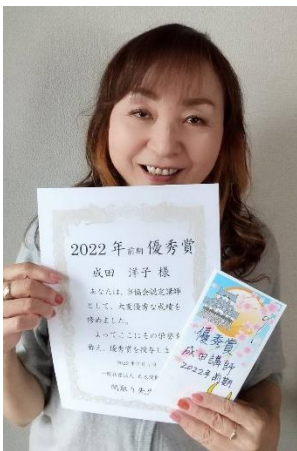 2022年前期優秀賞
成田 洋子 様
あなたは、当協会認定講師
として、大変優秀な成績を
修めました。
よってここにその栄誉を
称え、優秀賞を授与しま
一般社団法人
間取り
優秀賞
成田講師
2022年前期